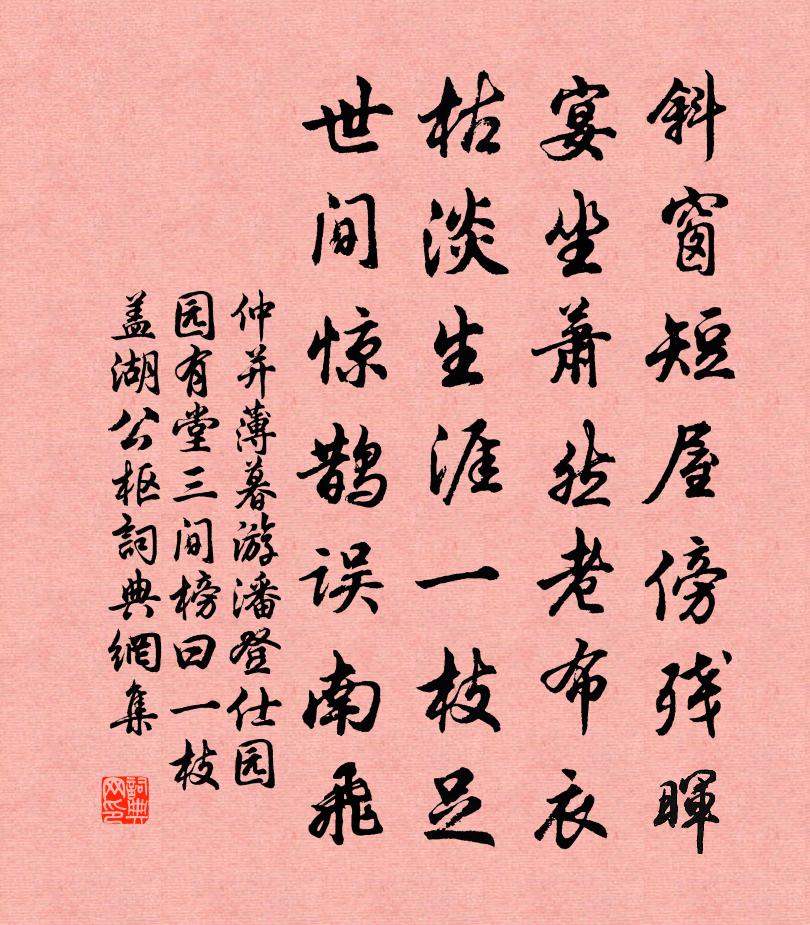 斜窗短屋傍残暉
宴坐萧然老布衣
枯淡生涯一枝足
世间惊鹊误南飛
仲并薄暮游潘登仕园
园有堂三间榜曰一枝
盖湖公枢詞典網集
詞典
网印